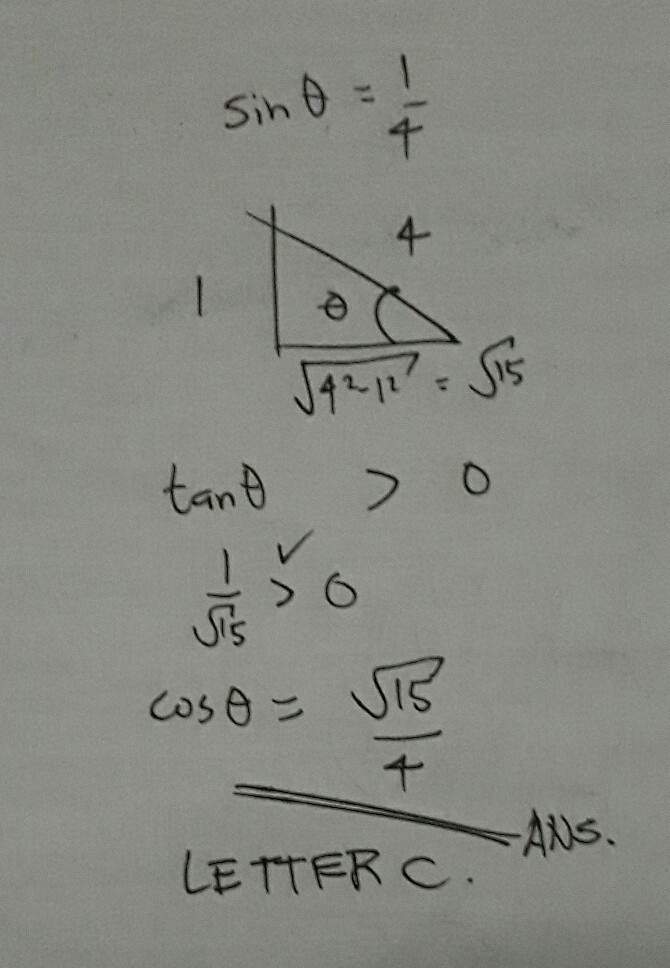 sin θ = 1/4
4
1
θ
√4²-1² = √15
tan θ > 0
1/√15 > 0 ✓
cos θ = √15/4
ANS.
LETTER C.